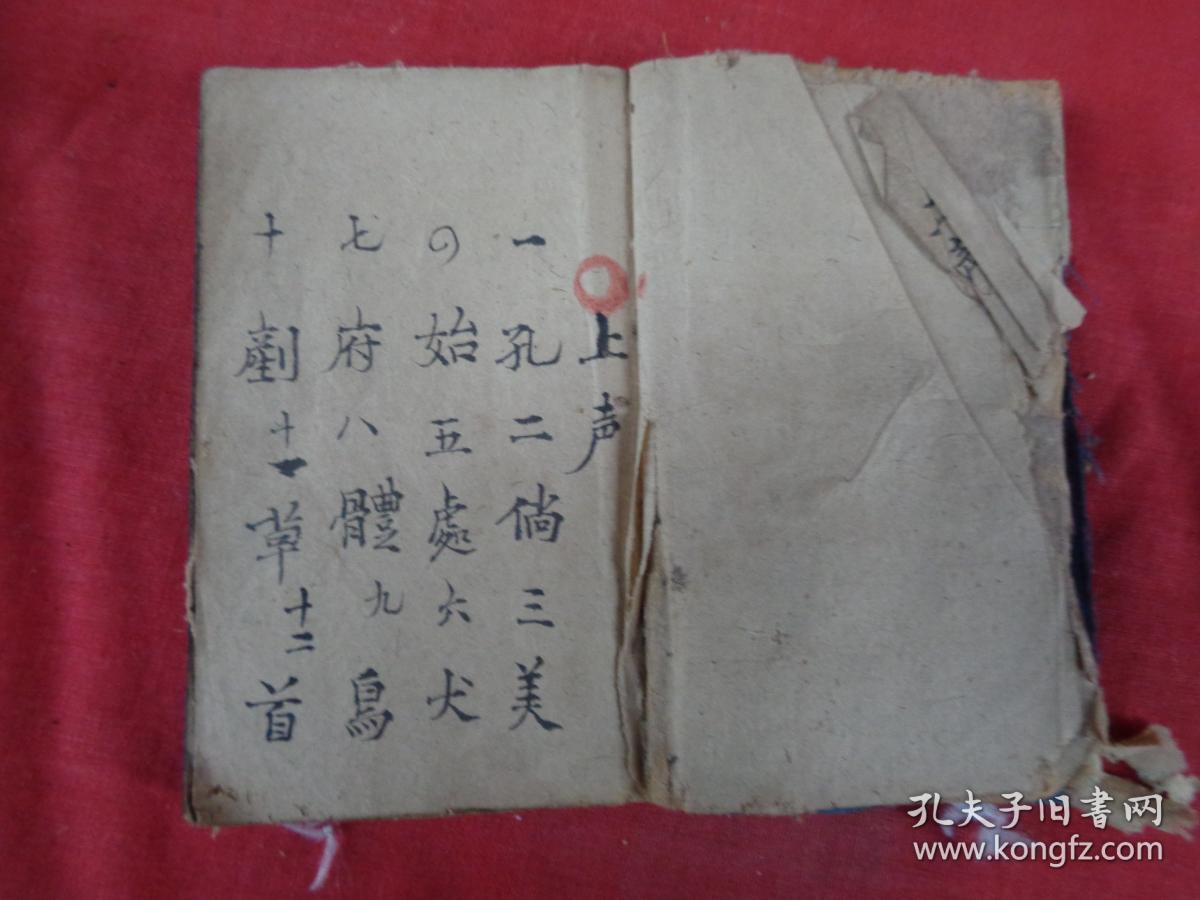 上声
一孔二倘三美
〇始五處六犬
七府八體九鳥
十剷十一草十二首
孔夫子旧书网
www.kongfz.com